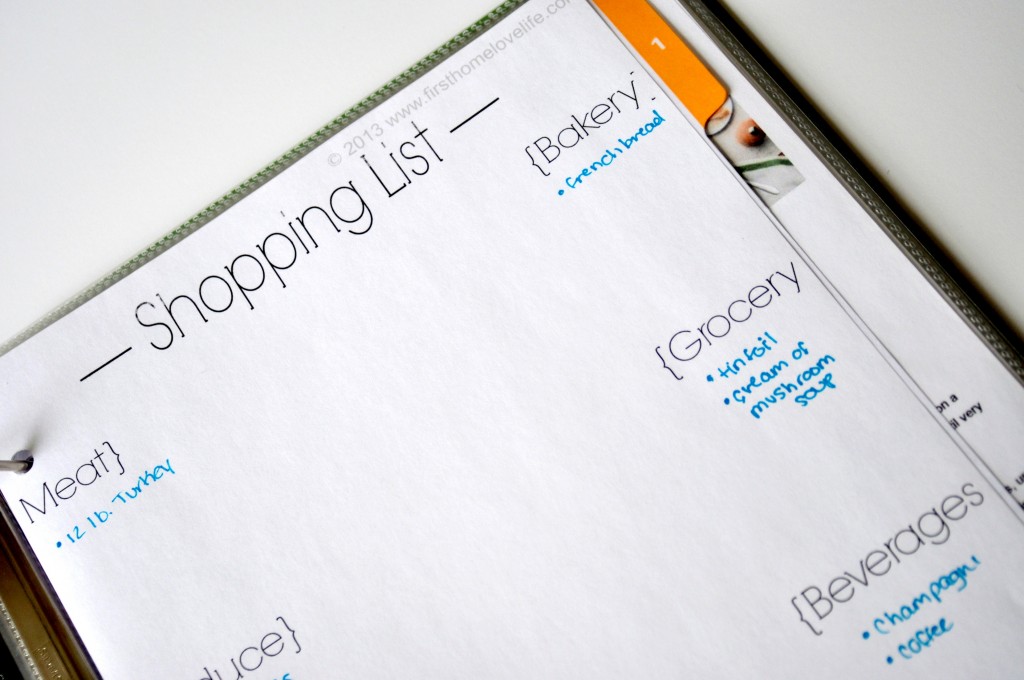 © 2013 www.firsthomelovelife.com
— Shopping List —
{Bakery
• french bread
1
{Grocery
• tin foil
• cream of
mushroom
soup
on a
very
Meat}
• 12 lb. Turkey
{Beverages
• champagne
• coffee
duce}